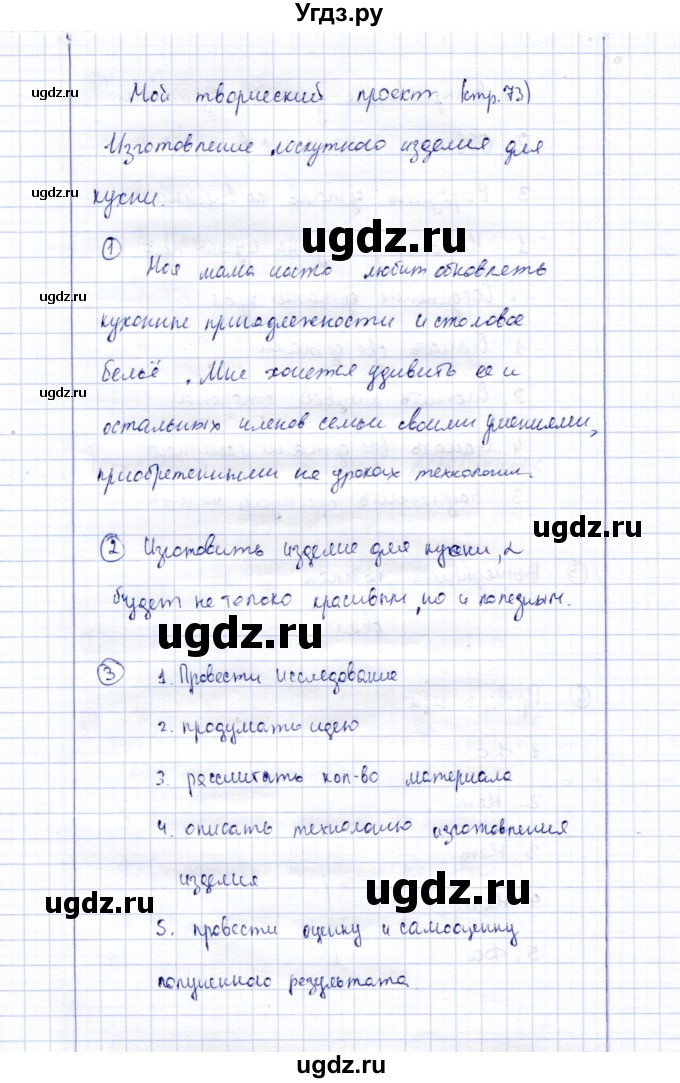 Угдз.ру
ugdz.ru
Мой творческий проект (стр. 73)
Изготовление лоскутного изделия для
ugdz.ru
кухни.
ugdz.ru
1
Моя мама часто любит обновлять
ugdz.ru
кухонные принадлежности и столовое
бельё. Мне хочется удивить ее и
ugdz.ru
остальных членов семьи своими умениями,
приобретенными на уроках технологии.
ugdz.ru
2 Изготовить изделие для кухни,
будет не только красивым, но и полезным.
ugdz.ru
3 1. Провести исследование
2. продумать идею
3. рассчитать кол-во материала
4. описать технологию изготовления
изделия
ugdz.ru
ugdz.ru
5. провести оценку и самооценку
полученного результата
ugdz.ru
ugdz.ru